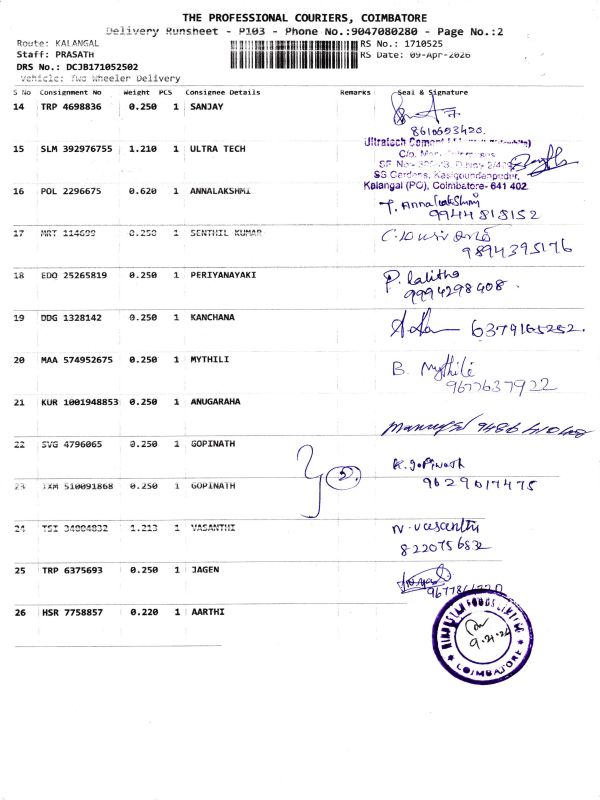 THE PROFESSIONAL COURIERS, COIMBATORE
Delivery Runsheet - P103 - Phone No.:9047080280 - Page No.:2
Route: KALANGAL RS No.: 1710525
Staff: PRASATH RS Date: 09-Apr-2026
DRS No.: DCJB171052502
Vehicle: Two Wheeler Delivery
S No Consignment No Weight PCS Consignee Details Remarks Seal & Signature
14 TRP 4698836 0.250 1 SANJAY
15 SLM 392976755 1.210 1 ULTRA TECH
Ultratech Cement
C/o.
SS Gardens, Kasigoundenpudur,
Kalangal (PO), Coimbatore- 641 402
16 POL 2296675 0.620 1 ANNALAKSHMI
T. Annalakshmi
9944818152
17 MRT 114699 0.250 1 SENTHIL KUMAR
9894395176
18 EDO 25265819 0.250 1 PERIYANAYAKI
P. Lalitha
9994298408.
19 DDG 1328142 0.250 1 KANCHANA
6379165252.
20 MAA 574952675 0.250 1 MYTHILI
B. Mythili
9677637922
21 KUR 1001948853 0.250 1 ANUGARAHA
22 SVG 4796065 0.250 1 GOPINATH
K. Gopinath
23 IXM 510091868 0.250 1 GOPINATH
2.
9629017475
24 TSI 34004832 1.213 1 VASANTHI
N. Vasanthi
8220756832
25 TRP 6375693 0.250 1 JAGEN
26 HSR 7758857 0.220 1 AARTHI
HINDUSTAN FOODS LIMITED
COIMBATORE